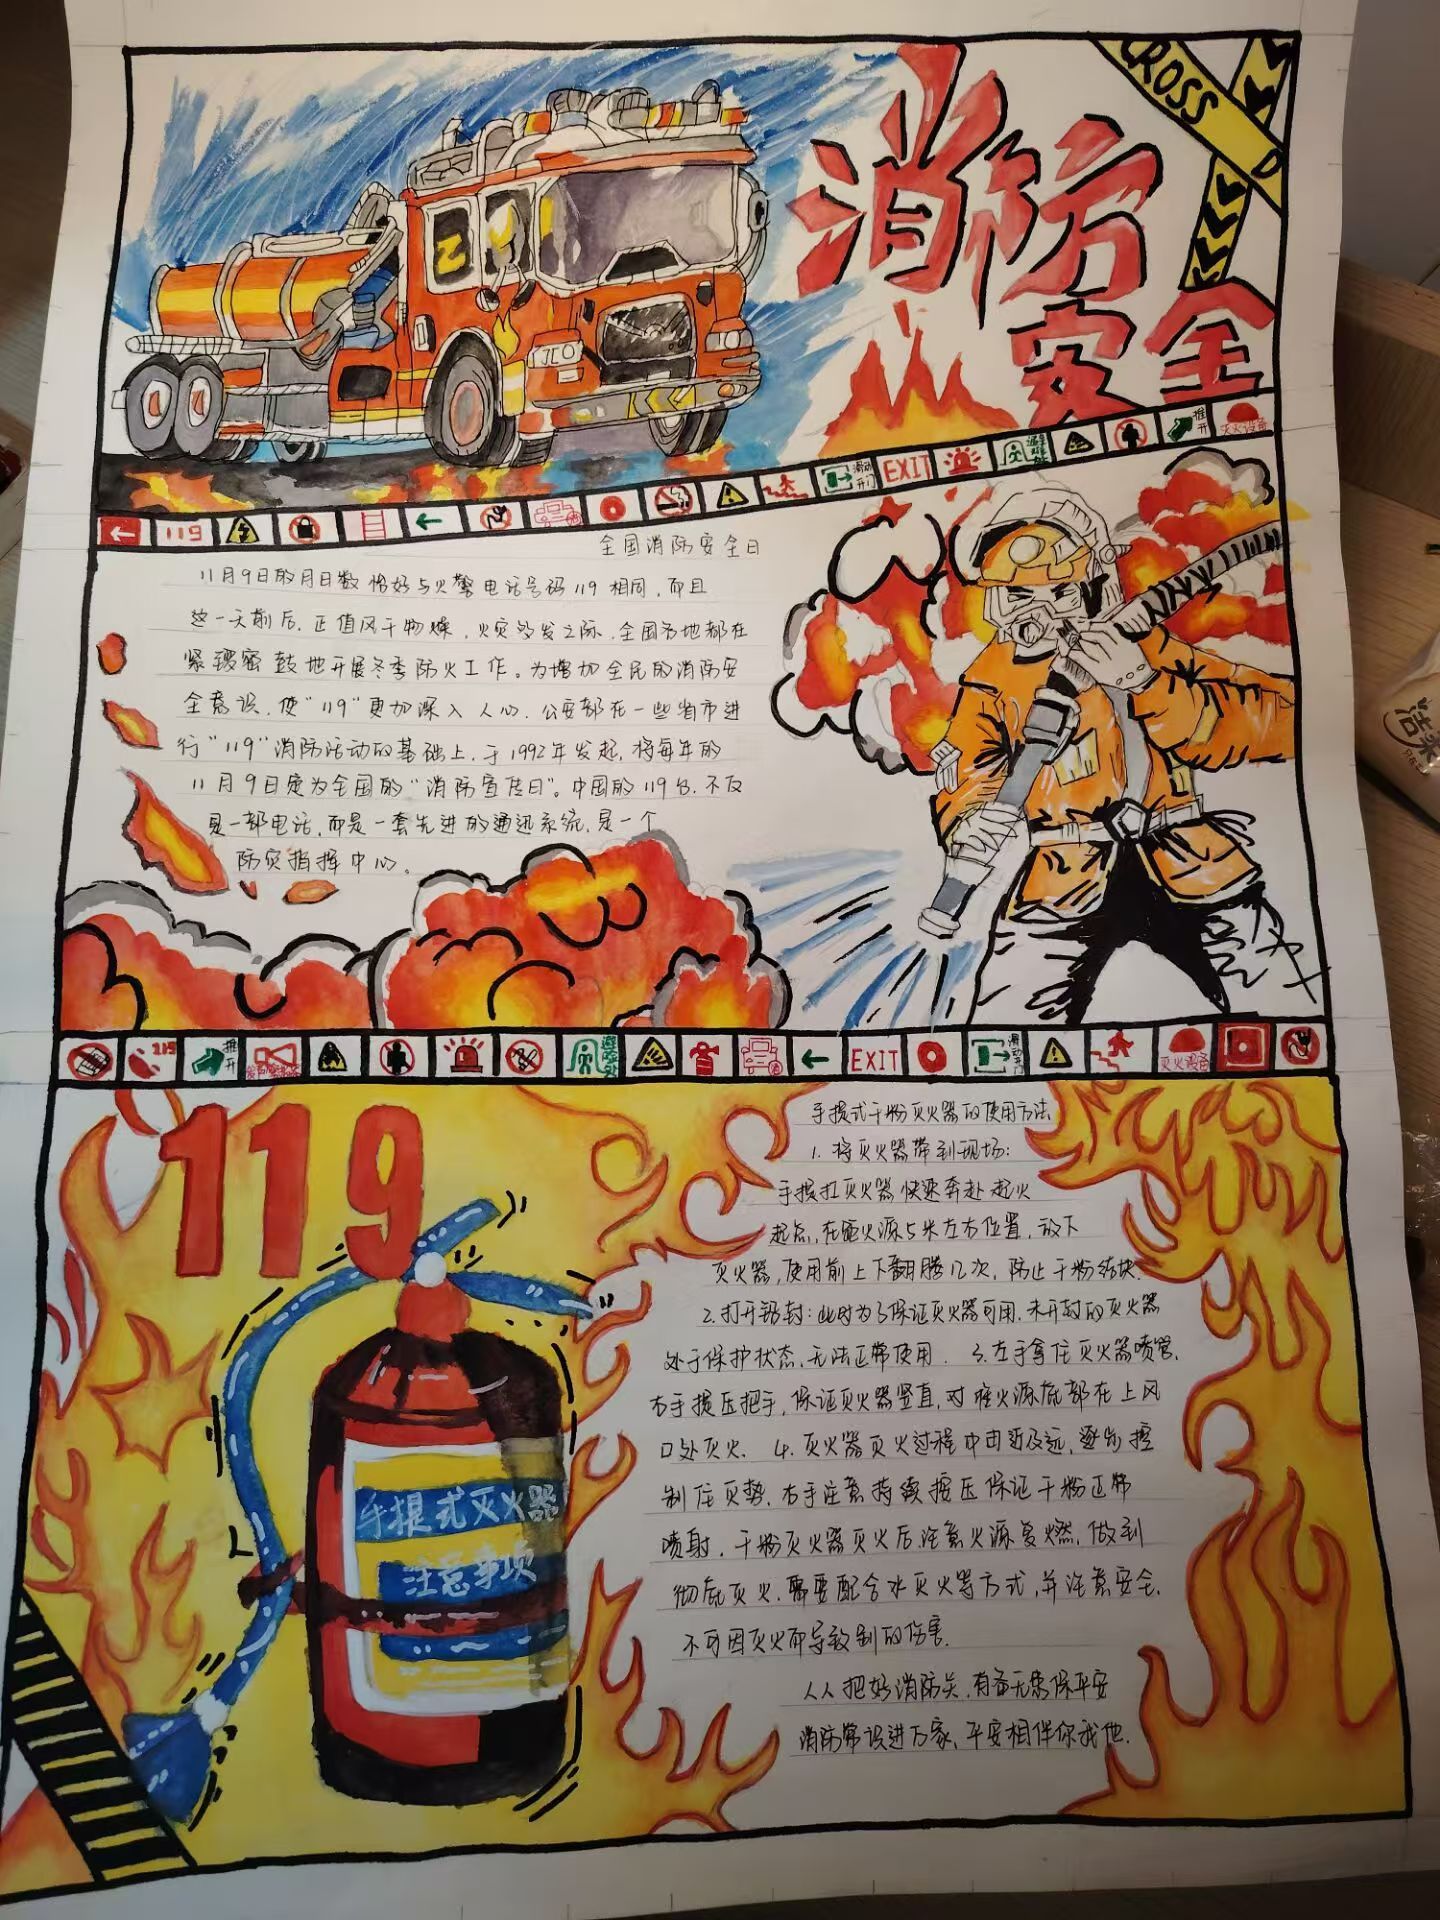 CROSS
消防
安全
JLO
119
EXIT
滑动开门
避难处
推开
灭火设备
全国消防安全日
11月9日的月日数恰好与火警电话号码119相同,而且
这一天前后,正值风干物燥,火灾多发之际,全国各地都在
紧锣密鼓地开展冬季防火工作。为增加全民的消防安
全意识,使"119"更加深入人心,公安部在一些省市进
行"119"消防活动的基础上,于1992年发起,将每年的
11月9日定为全国的"消防宣传日"。中国的119台,不仅
是一部电话,而是一套先进的通迅系统,是一个
防灾指挥中心。
119
推开
避难处
EXIT
滑动开门
灭火设备
119
手提式干粉灭火器的使用方法
1.将灭火器带到现场:
手提扛灭火器快速奔赴起火
起点,在距火源5米左右位置,放下
灭火器,使用前上下翻腾几次,防止干粉结块.
2.打开铅封:此时为了保证灭火器可用.未开封的灭火器
处于保护状态,无法正常使用. 3.左手拿住灭火器喷管,
右手提压把手,保证灭火器竖直,对准火源底部在上风
口处灭火. 4.灭火器灭火过程中由近及远,逐步控
制住灭势.右手注意持续按压保证干粉正常
喷射.干粉灭火器灭火后注意火源复燃,做到
彻底灭火.需要配合水灭火等方式,并注意安全.
不可因灭火而导致别的伤害.
人人把好消防关,有备无患保平安
消防常识进万家,平安相伴你我他.
手提式灭火器
注意事项